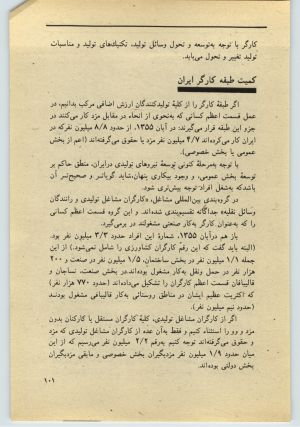 کارگر با توجه به‌توسعه و تحول وسائل تولید، تکنیك‌های تولید و مناسبات
تولید تغییر و تحول می‌یابد.
کمیت طبقه کارگر ایران
اگر طبقهٔ کارگر را از کلیهٔ تولیدکنندگان ارزش اضافی مرکب بدانیم، در
عمل قسمت اعظم کسانی که به‌نحوی از انحاء در مقابل مزد کار می‌کنند در
جزو این طبقه قرار می‌گیرند: در آبان ۱۳۵۵، از حدود ۸/۸ میلیون نفر که در
ایران کار می‌کرده‌اند ۴/۷ میلیون نفر مزد یا حقوق می‌گرفته‌اند (اعم از بخش
عمومی یا بخش خصوصی).
با توجه به‌مرحلهٔ کنونی توسعهٔ نیروهای تولیدی درایران، منطق حاکم بر
توسعهٔ بخش عمومی، و وجود بیکاری پنهان، شاید گویاتر و صحیح‌تر آن
باشد که به‌شغل افراد توجه بیش‌تری شود.
در گروه‌بندی بین‌المللی مشاغل، «کارگران مشاغل تولیدی و رانندگان
وسائل نقلیه» جداگانه تقسیم‌بندی شده‌اند. و این گروه قسمت اعظم کسانی
را که به‌عنوان کارگر به‌کار صنعتی مشغولند در برمی‌گیرد.
باز هم درآبان ۱۳۵۵، شمارهٔ این افراد حدود ۳/۳ میلیون نفر بود.
(البته باید گفت که این رقم کارگران کشاورزی را شامل نمی‌شود.) از این
جمله ۱/۱ میلیون نفر در بخش ساختمان، ۱/۵ میلیون نفر در صنعت و ۲۰۰
هزار نفر در حمل ونقل به‌کار مشغول بوده‌اند. در بخش صنعت، نساجان و
قالیبافان قسمت اعظم کارگران را تشکیل می‌داده‌اند (حدود ۷۷۰ هزار نفر)
که اکثریت عظیم ایشان در مناطق روستائی به‌کار قالیبافی مشغول بودند
(حدود نیم میلیون نفر).
اگر از کارگران مشاغل تولیدی، کلیهٔ کارگران مستقل یا کارکنان بدون
مزد و رو را استثناء کنیم و فقط به‌آن عده از کارگران مشاغل تولیدی که مزد
و حقوق می‌گرفته‌اند توجه کنیم به‌رقم ۲/۲ میلیون نفر می‌رسیم که از این
میان حدود ۱/۹ میلیون نفر مزدبگیران بخش خصوصی و مابقی مزدبگیران
بخش دولتی بوده‌اند.
۱۰۱